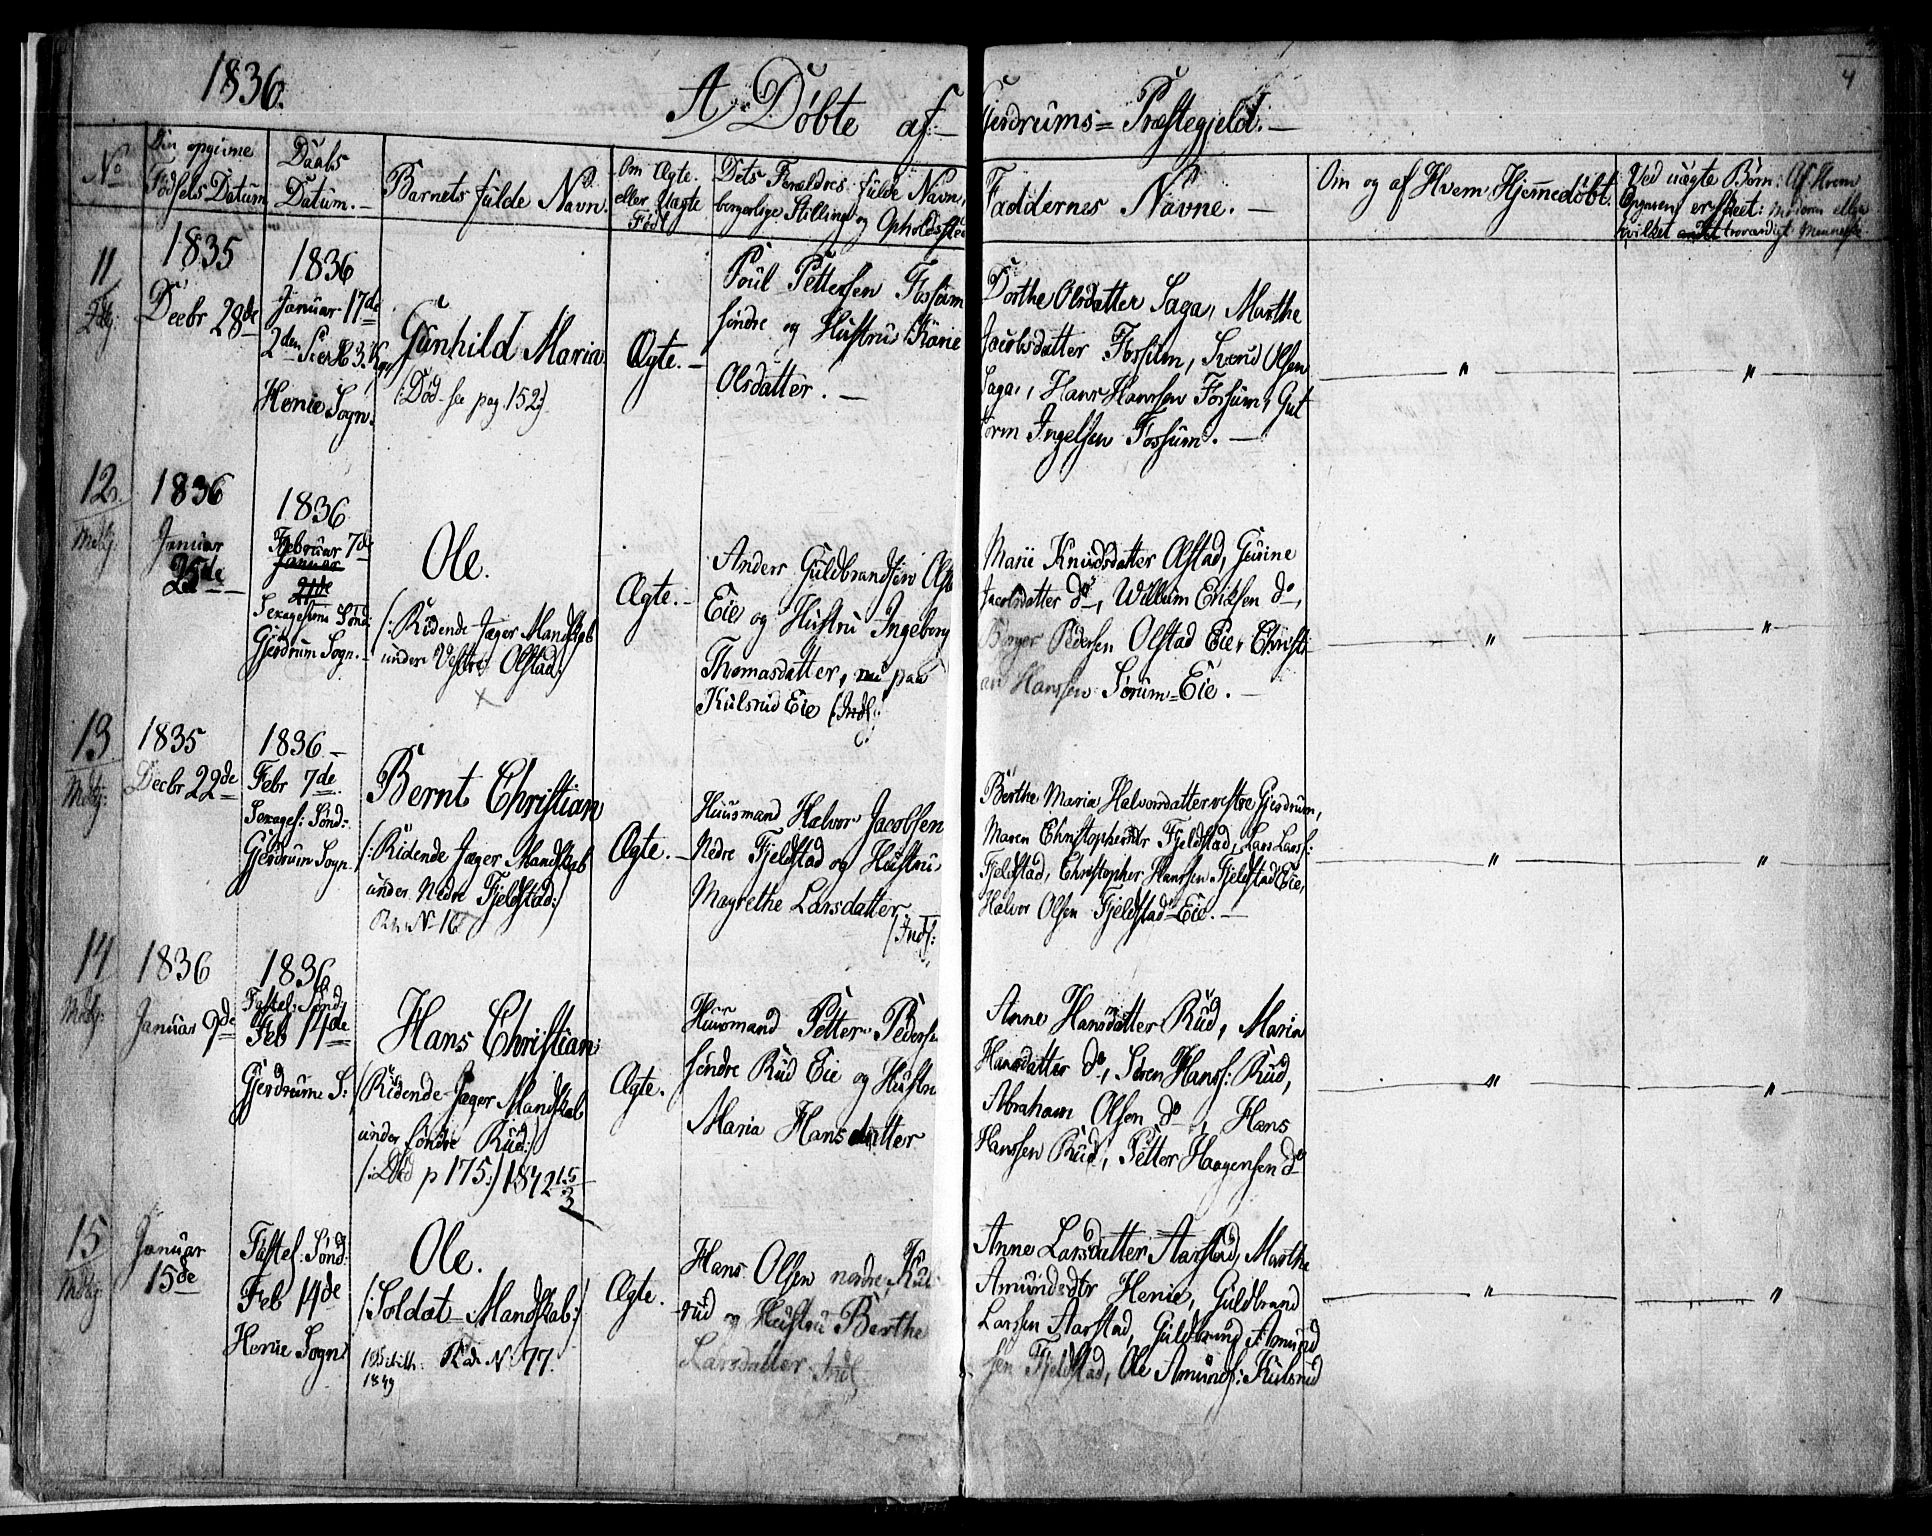 1836.
A Døbte af Gjerdrums= Præstegjeld.
4
No
Den opgivne
Fødsels Datum
Daabs
Datum.
Barnets fulde Navn.
Om Ægte
eller Uægte
Født
Dets Forældres fulde Navne,
borgerlige Stilling og Opholdssted
Faddernes Navne.
Om og af Hvem Hjemmedøbt.
Ved uægte Børn: Af Hvem
Opgaven er skeet:
hvilket andet troværdigt Menneske
11
1835
Decbr 28de
1836
Januar 17de
2den S. e. H. 3 K.
Henie Sogn.
Gunhild Maria
(Død see pag. 152)
Ægte.
Poul Pettersen Fossum
søndre og Hustru Karie
Olsdatter.
Dorthe Olsdatter Saga, Marthe
Jacobsdatter Fossum, Svend Olsen
Saga, Hans Hanssen Fossum, Gut
torm Ingelsen Fossum.
12.
1836
Januar
25de
1836
Februar 7de
Januar
21de
Sexagesima Sønd:
Gjerdrum Sogn.
Ole.
/: Ridende Jæger Mandskab
under Vestre Olstad:/
x
Ægte.
Anders Guldbrandsen Olst
Eie og Hustru Ingeborg
Thomasdatter, nu paa
Kulsrud Eie (Inds:
Marie Knudsdatter Olstad, Gurine
Jacobsdatter do, Willum Eriksen do,
Borger Pedersen Olstad Eie, Christi
an Hanssen Sørum=Eie.
13
1835
Decbr 22de
1836
Febr 7de
Sexages: Sønd:
Gjerdrum Sogn.
Bernt Christian
/: Ridende Jæger Mandskab
under Nedre Fjeldstad:/
No 16
Ægte.
Huusmand Halvor Jacobsen
Nedre Fjeldstad og Hustru
Magrethe Larsdatter.
(Inds:
Berthe Maria Halvorsdatter vestre Gjerdrum,
Maren Christophersdtr Fjeldstad, Lars Larss:
Fjeldstad, Christopher Hanssen Fjeldstad Eie,
Halvor Olsen Fjeldstad=Eie.
14
1836
Januar 9de
1836
Fastel: Sønd:
Feb 14de
Gjerdrums S:
Hans Christian
/: Ridende Jæger Mandskab
under søndre Rud:/
/: Død p 175:/ 1842 15/3
Ægte.
Huusmand Petter Peders
søndre Rud Eie og Hustru
Maria Hansdatter
Anne Hansdatter Rud, Maria
Hansdatter do, Søren Hanss: Rud,
Abraham Olsen do, Hans
Hanssen Rud, Petter Haagensen do
15
Januar
15de
Fastel: Sønd:
Feb 14de
Henie Sogn
Ole.
/: Soldat Mandskab:/
No 77.
1849
Ægte.
Hans Olsen nordre Kuls
rud og Hustru Berthe
Larsdatter Inds
Anne Larsdatter Aarstad, Marthe
Amundsdtr Henie, Guldbrand
Larssen Aarstad, Guldbrand Amund
sen Fjeldstad, Ole Amunds: Kulsrud